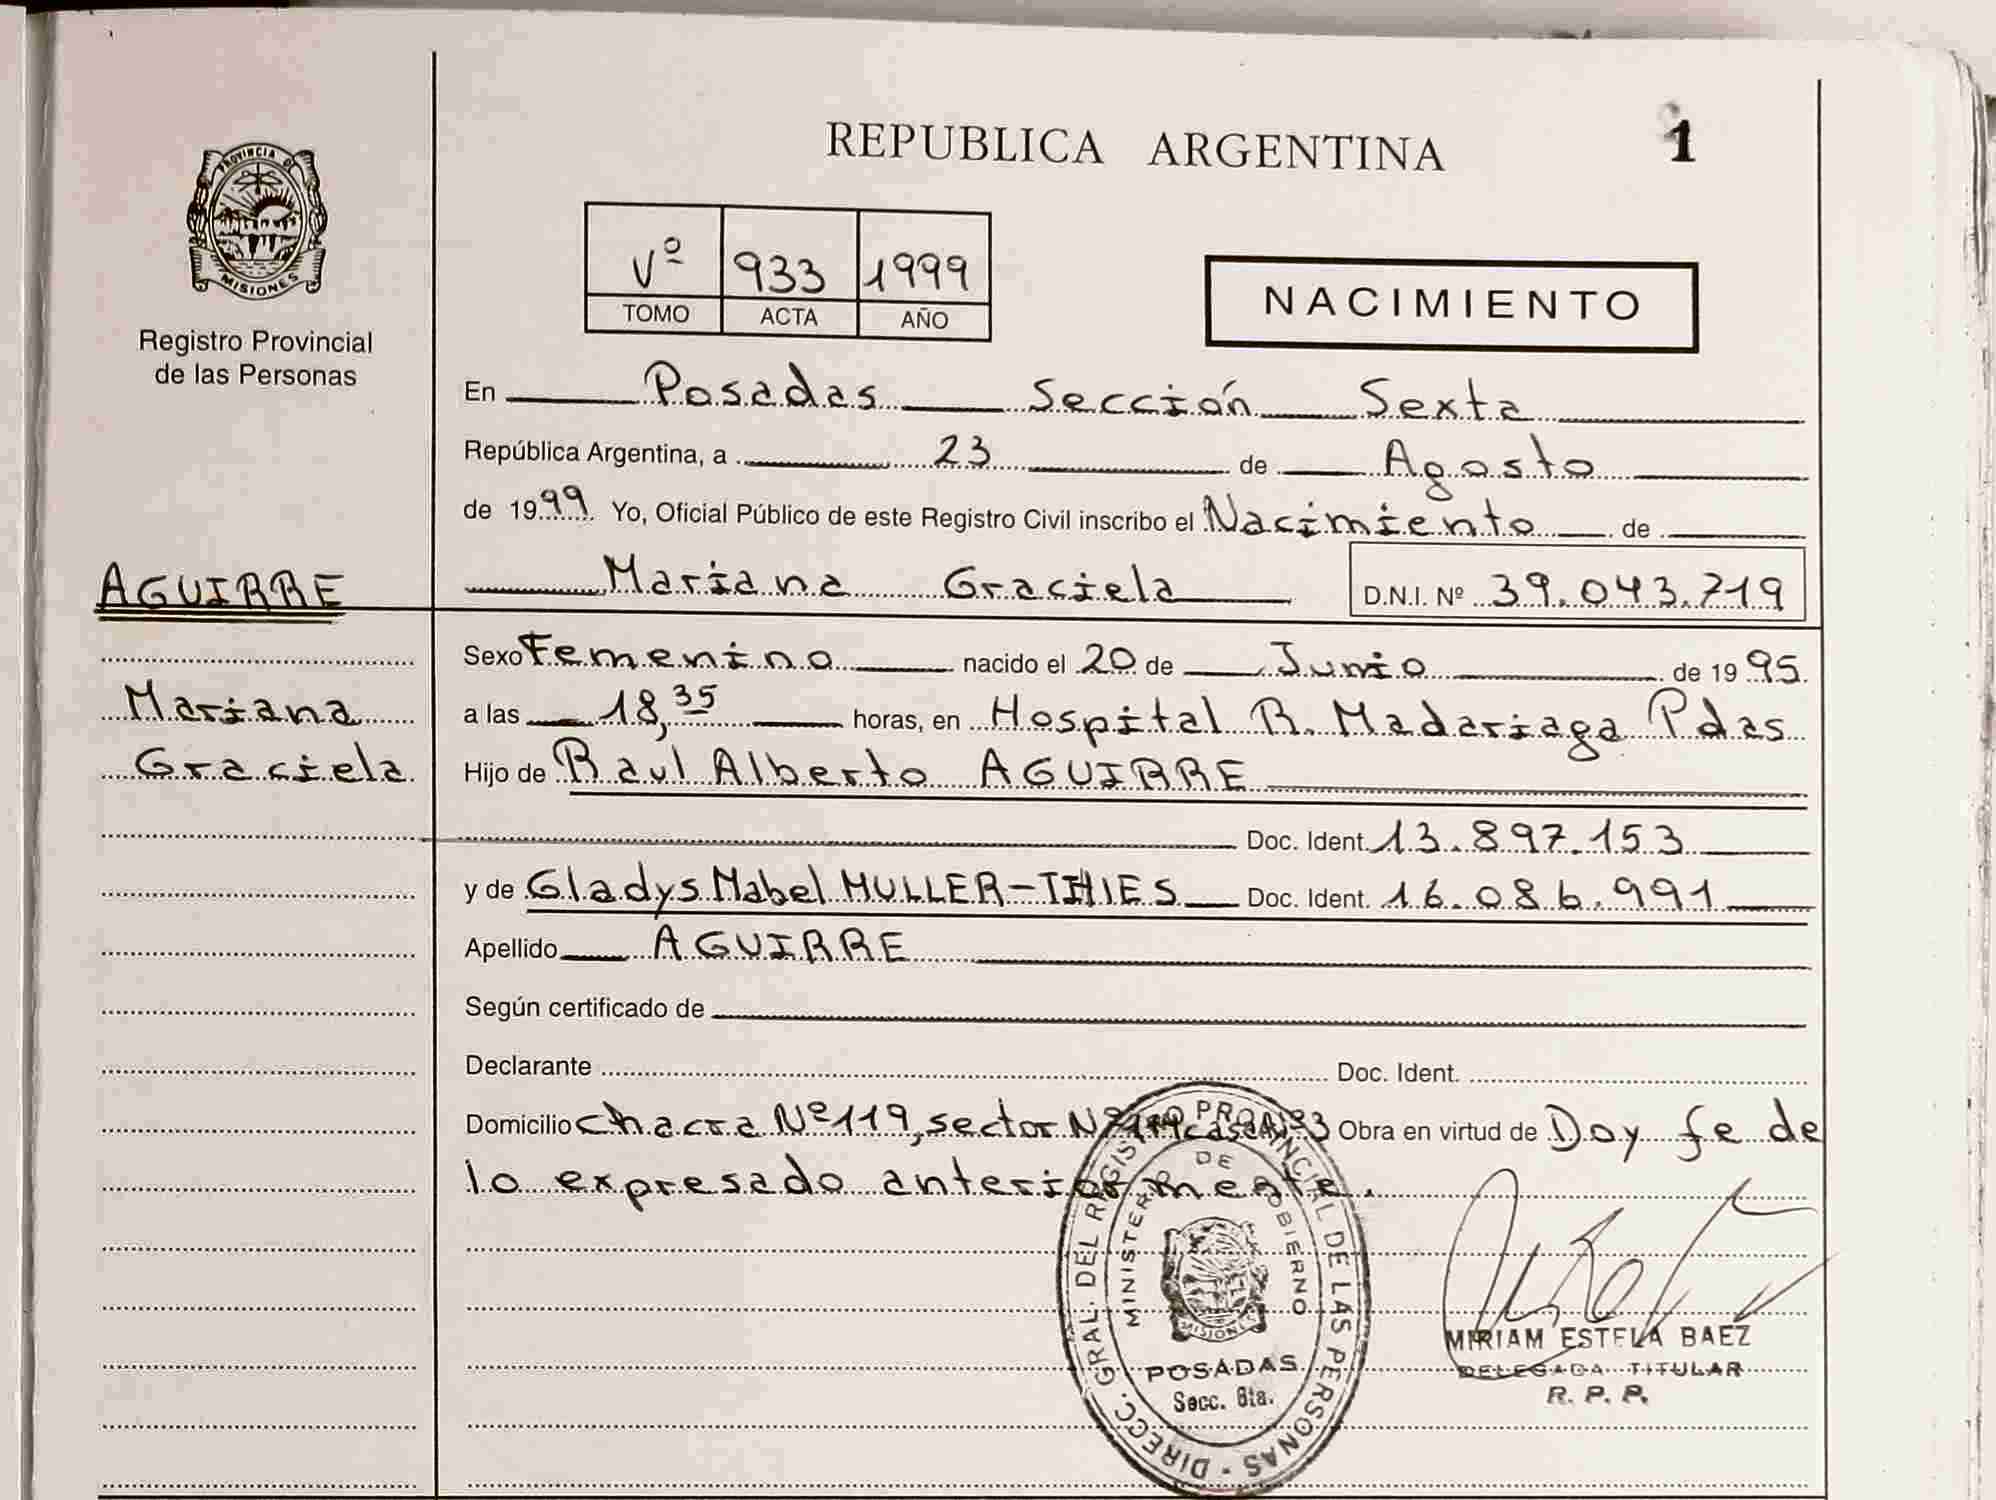 REPUBLICA ARGENTINA
1
PROVINCIA DE
MISIONES
Registro Provincial
de las Personas
Vº 933 1999
TOMO ACTA AÑO
NACIMIENTO
En Posadas Sección Sexta
República Argentina, a 23 de Agosto
de 1999 Yo, Oficial Público de este Registro Civil inscribo el Nacimiento de
Mariana Graciela D.N.I. Nº 39.043.719
AGUIRRE
Mariana
Graciela
Sexo Femenino nacido el 20 de Junio de 1995
a las 18,35 horas, en Hospital R. Madariaga Pdas
Hijo de Raul Alberto AGUIRRE
Doc. Ident. 13.897.153
y de Gladys Mabel MULLER-THIES Doc. Ident. 16.086.991
Apellido AGUIRRE
Según certificado de
Declarante Doc. Ident.
Domicilio chacra Nº 119, sector Nº casa Nº 3 Obra en virtud de Doy fe de
lo expresado anteriormente.
DIRECC. GRAL. DEL REGISTRO PROVINCIAL DE LAS PERSONAS -
MINISTERIO DE GOBIERNO
MISIONES
POSADAS
Secc. 6ta.
MIRIAM ESTELA BAEZ
DELEGADA TITULAR
R. P. P.